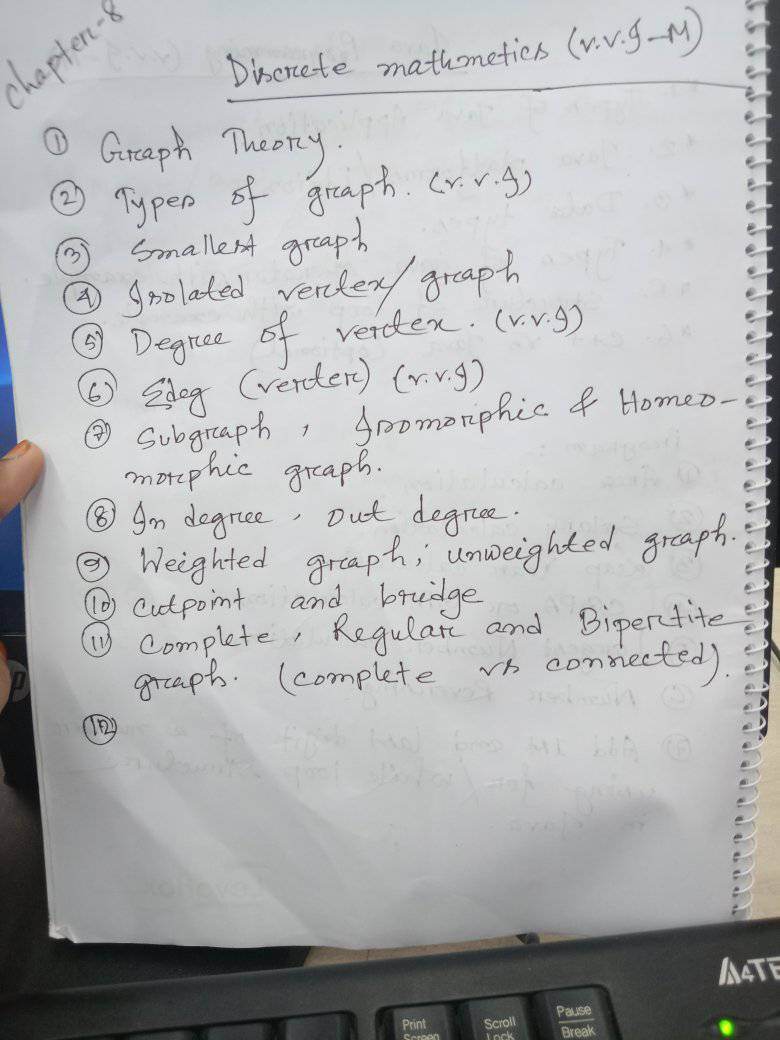 chapter-8
Discrete mathmetics (v.v.I-M)
① Graph Theory.
② Types of graph. (v.v.I)
③ Smallest graph
④ Isolated vertex/graph
⑤ Degree of vertex. (v.v.I)
⑥ Edeg (vertex) (v.v.I)
⑦ Subgraph, Isomorphic & Homeo-
morphic graph.
⑧ In degree, out degree.
⑨ Weighted graph, unweighted graph.
⑩ cutpoint and bridge
⑪ Complete, Regular and Bipertite
graph. (complete vs connected).
⑫
A4TE
Print
Screen
Scroll
Lock
Pause
Break